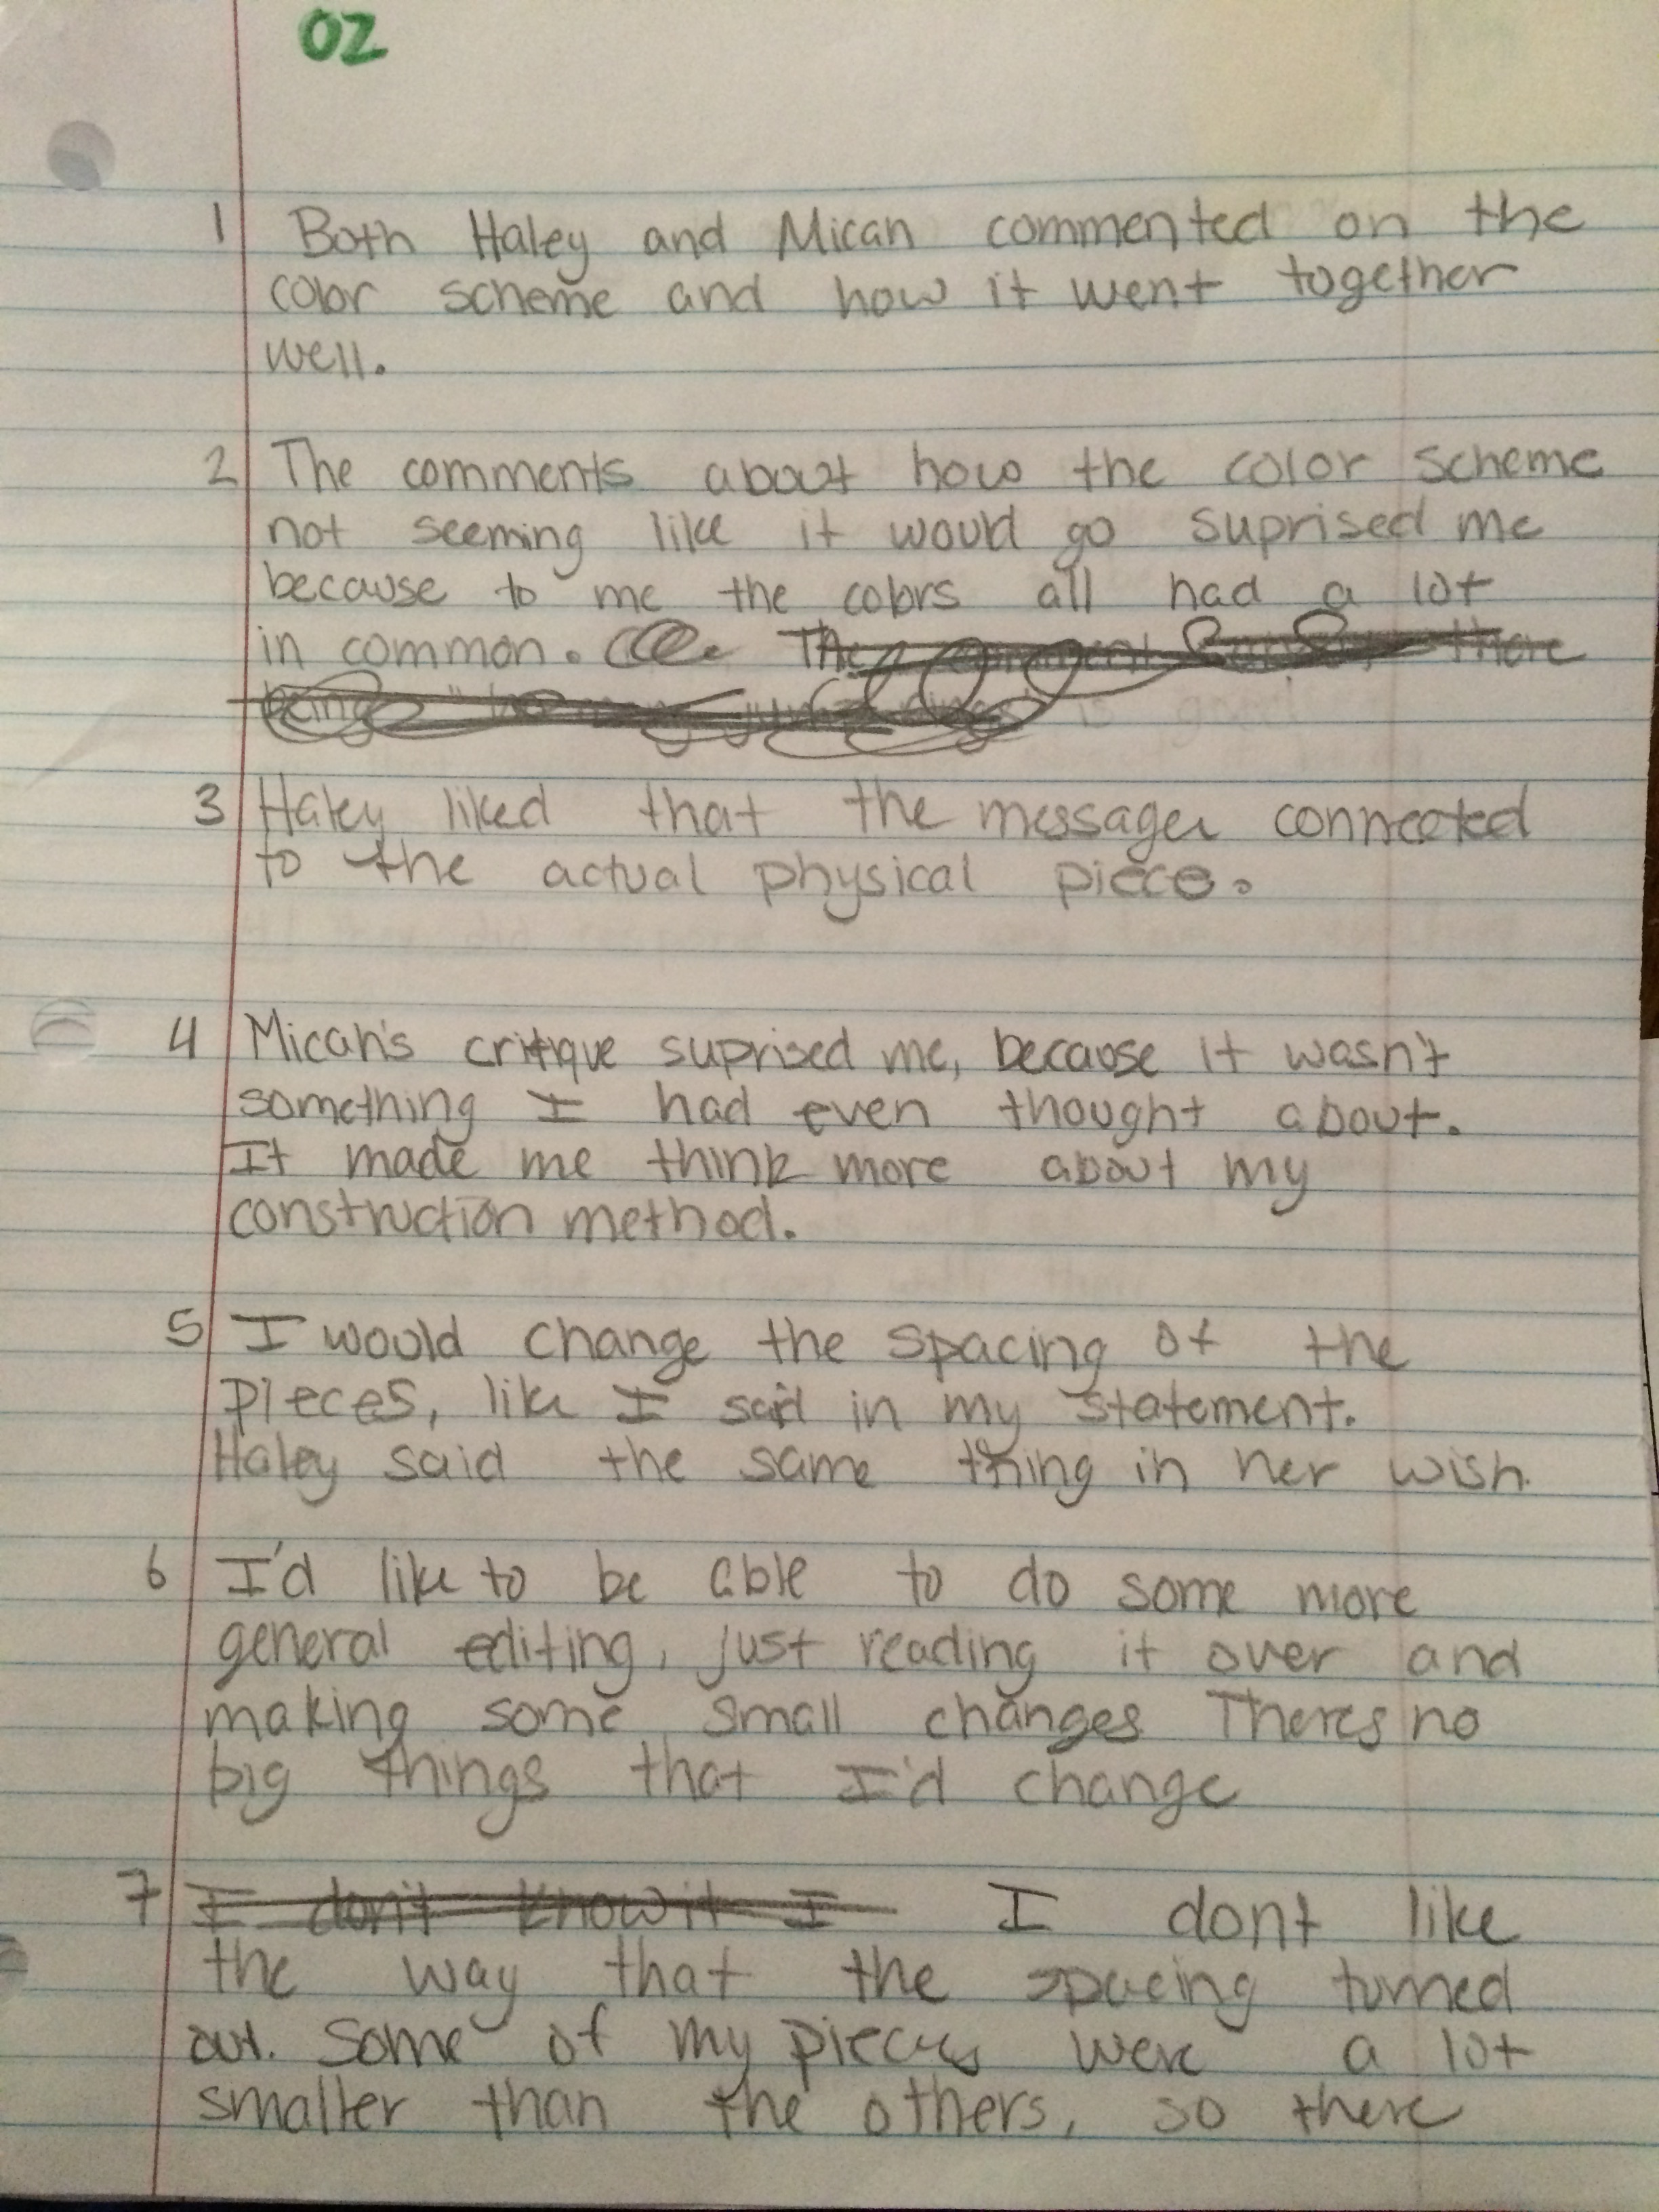 OZ
1 Both Haley and Micah commented on the
color scheme and how it went together
well.
2 The comments about how the color scheme
not seeming like it would go suprised me
because to me the colors all had a lot
in common. The comment there
being
3 Haley liked that the message connected
to the actual physical piece.
4 Micah's critique suprised me, because it wasn't
something I had even thought about.
It made me think more about my
construction method.
5 I would change the spacing of the
pieces, like I said in my statement.
Haley said the same thing in her wish.
6 I'd like to be able to do some more
general editing, just reading it over and
making some small changes Theres no
big things that I'd change
7 I don't know it I I dont like
the way that the spacing turned
out. Some of my pieces were a lot
smaller than the others, so there